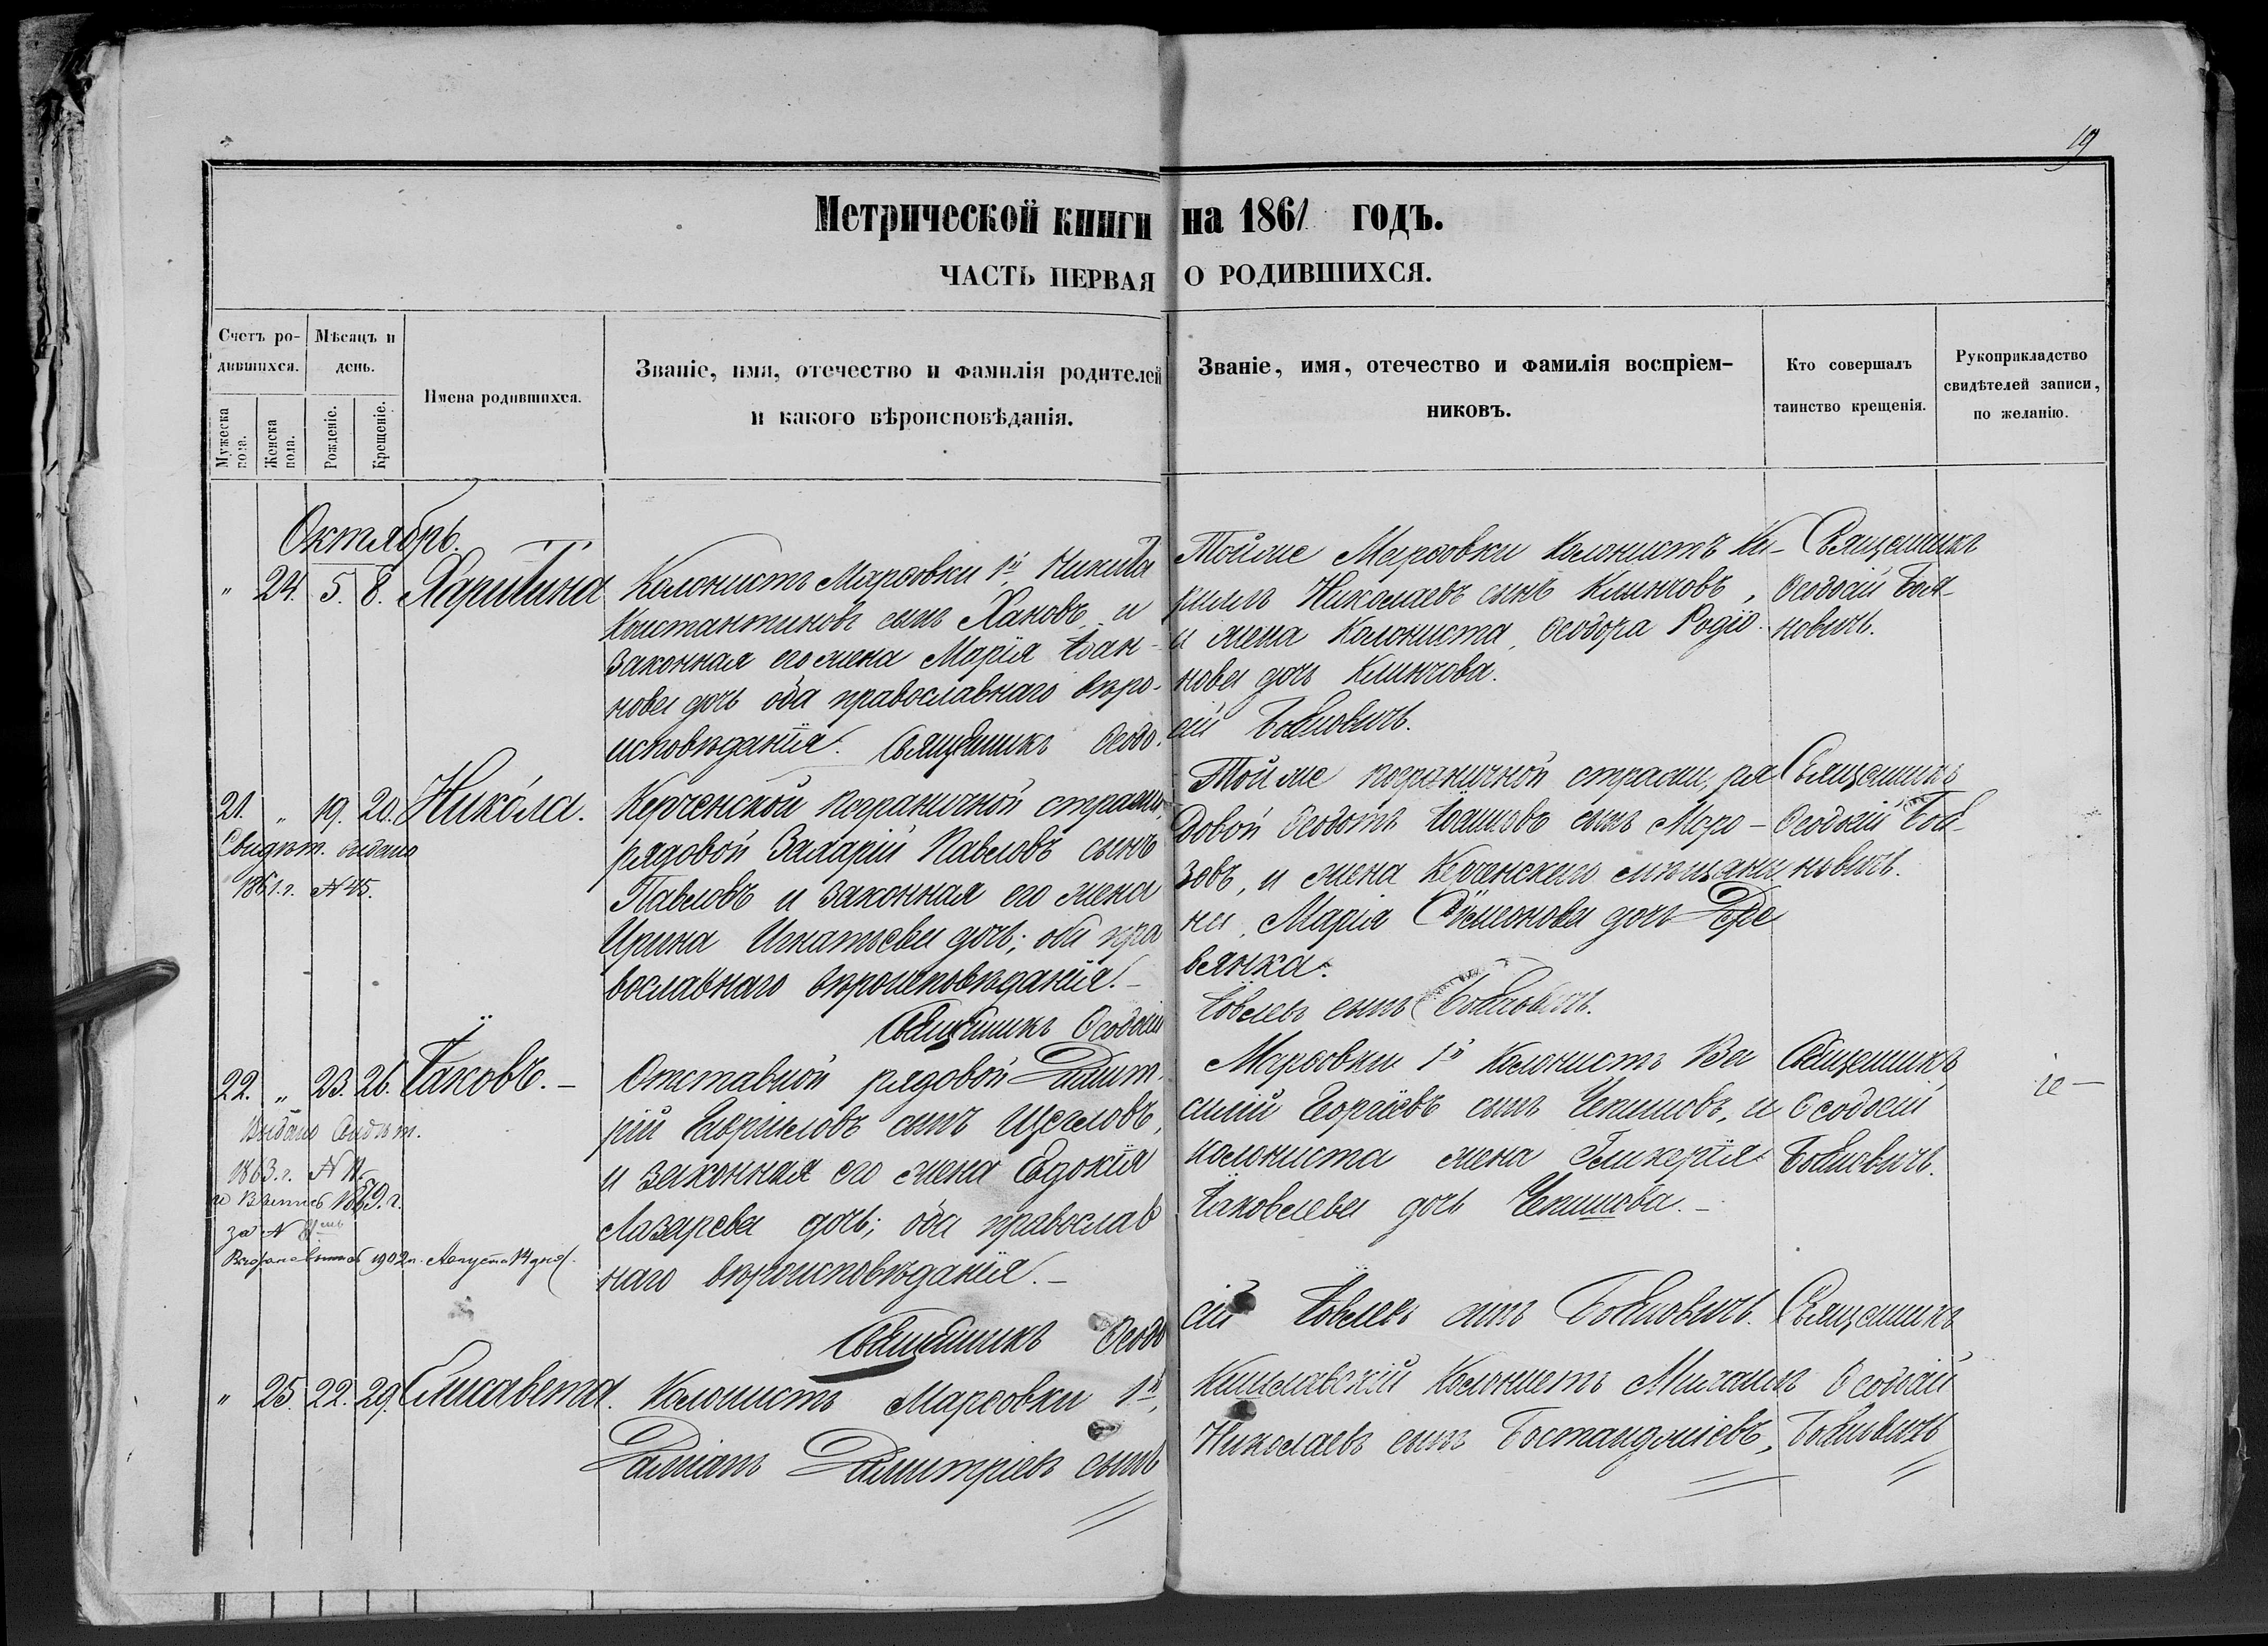 19
Метрической книги на 1861 годъ.
ЧАСТЬ ПЕРВАЯ О РОДИВШИХСЯ.
Счетъ родившихся.
Мужеска пола.
Женска пола.
Мѣсяцъ и день.
Рожденіе.
Крещеніе.
Имена родившихся.
Званіе, имя, отечество и фамилія родителей
и какого вѣроисповѣданія.
Званіе, имя, отечество и фамилія воспріем-
никовъ.
Кто совершалъ
таинство крещенія.
Рукоприкладство
свидѣтелей записи,
по желанію.
Октябрь.
" 24. 5. 8. Харитина
Колонистъ Марѳовки 1й, Никита
Константиновъ сынъ Хановъ, и
законная его жена Марія Іоан-
нова дочь оба православнаго вѣро-
исповѣданія. Священникъ Ѳеодо-
Тойже Марѳовки колонистъ Ки-
риллъ Николаевъ сынъ Клинчовъ,
и жена колониста, Ѳеодора Родіо-
нова дочь Клинчова.
сій Бобиовичъ.
Священникъ
Ѳеодосій Боб-
новичъ.
21. " 19. 20. Никола.
Свидѣт. выдано
1861. г. N 45.
Керченской пограничной стражи,
рядовой Захарій Павловъ сынъ
Павловъ и законная его жена
Ирина Игнатьева дочь; оба пра
вославнаго вѣроисповѣданія.-
Священникъ Ѳеодосій
Тойже пограничной стражи, ря
довой Ѳеодотъ Іоанновъ сынъ Моро-
зовъ, и жена Керченскаго мѣщани
на, Марія Сѵмеонова дочь Дере
вянка.
Іовлевъ сынъ
Священникъ
Ѳеодосій Боб-
новичъ.
22. " 23. 26. Іаковъ.-
Выдано Свидѣт.
1863. г. N 11.
и Вѣтись 1869. г.
за N
1902 г. Августа 14 дня.
Отставной рядовой Димит-
рій Гавріиловъ сынъ Щегловъ,
и законная его жена Евдокія
Лазарева дочь; оба православ
наго вѣроисповѣданія.-
Священникъ Ѳеодо
Марѳовки 1й Колонистъ Ва
силій Георгіевъ сынъ Чепишовъ, и
колониста жена Гликерія
Іаковлева дочь Чепишова.-
сій Іовлевъ сынъ Бобновичъ.
Священникъ
Ѳеодосій
Бобновичъ.
" 25. 22. 29. Елисавета.
Колонистъ Марѳовки 1й,
Даміанъ Димитріевъ сынъ
Кишлавскій Колонистъ Михаилъ
Николаевъ сынъ Бостанджіевъ,
Священникъ
Ѳеодосій
Бобновичъ